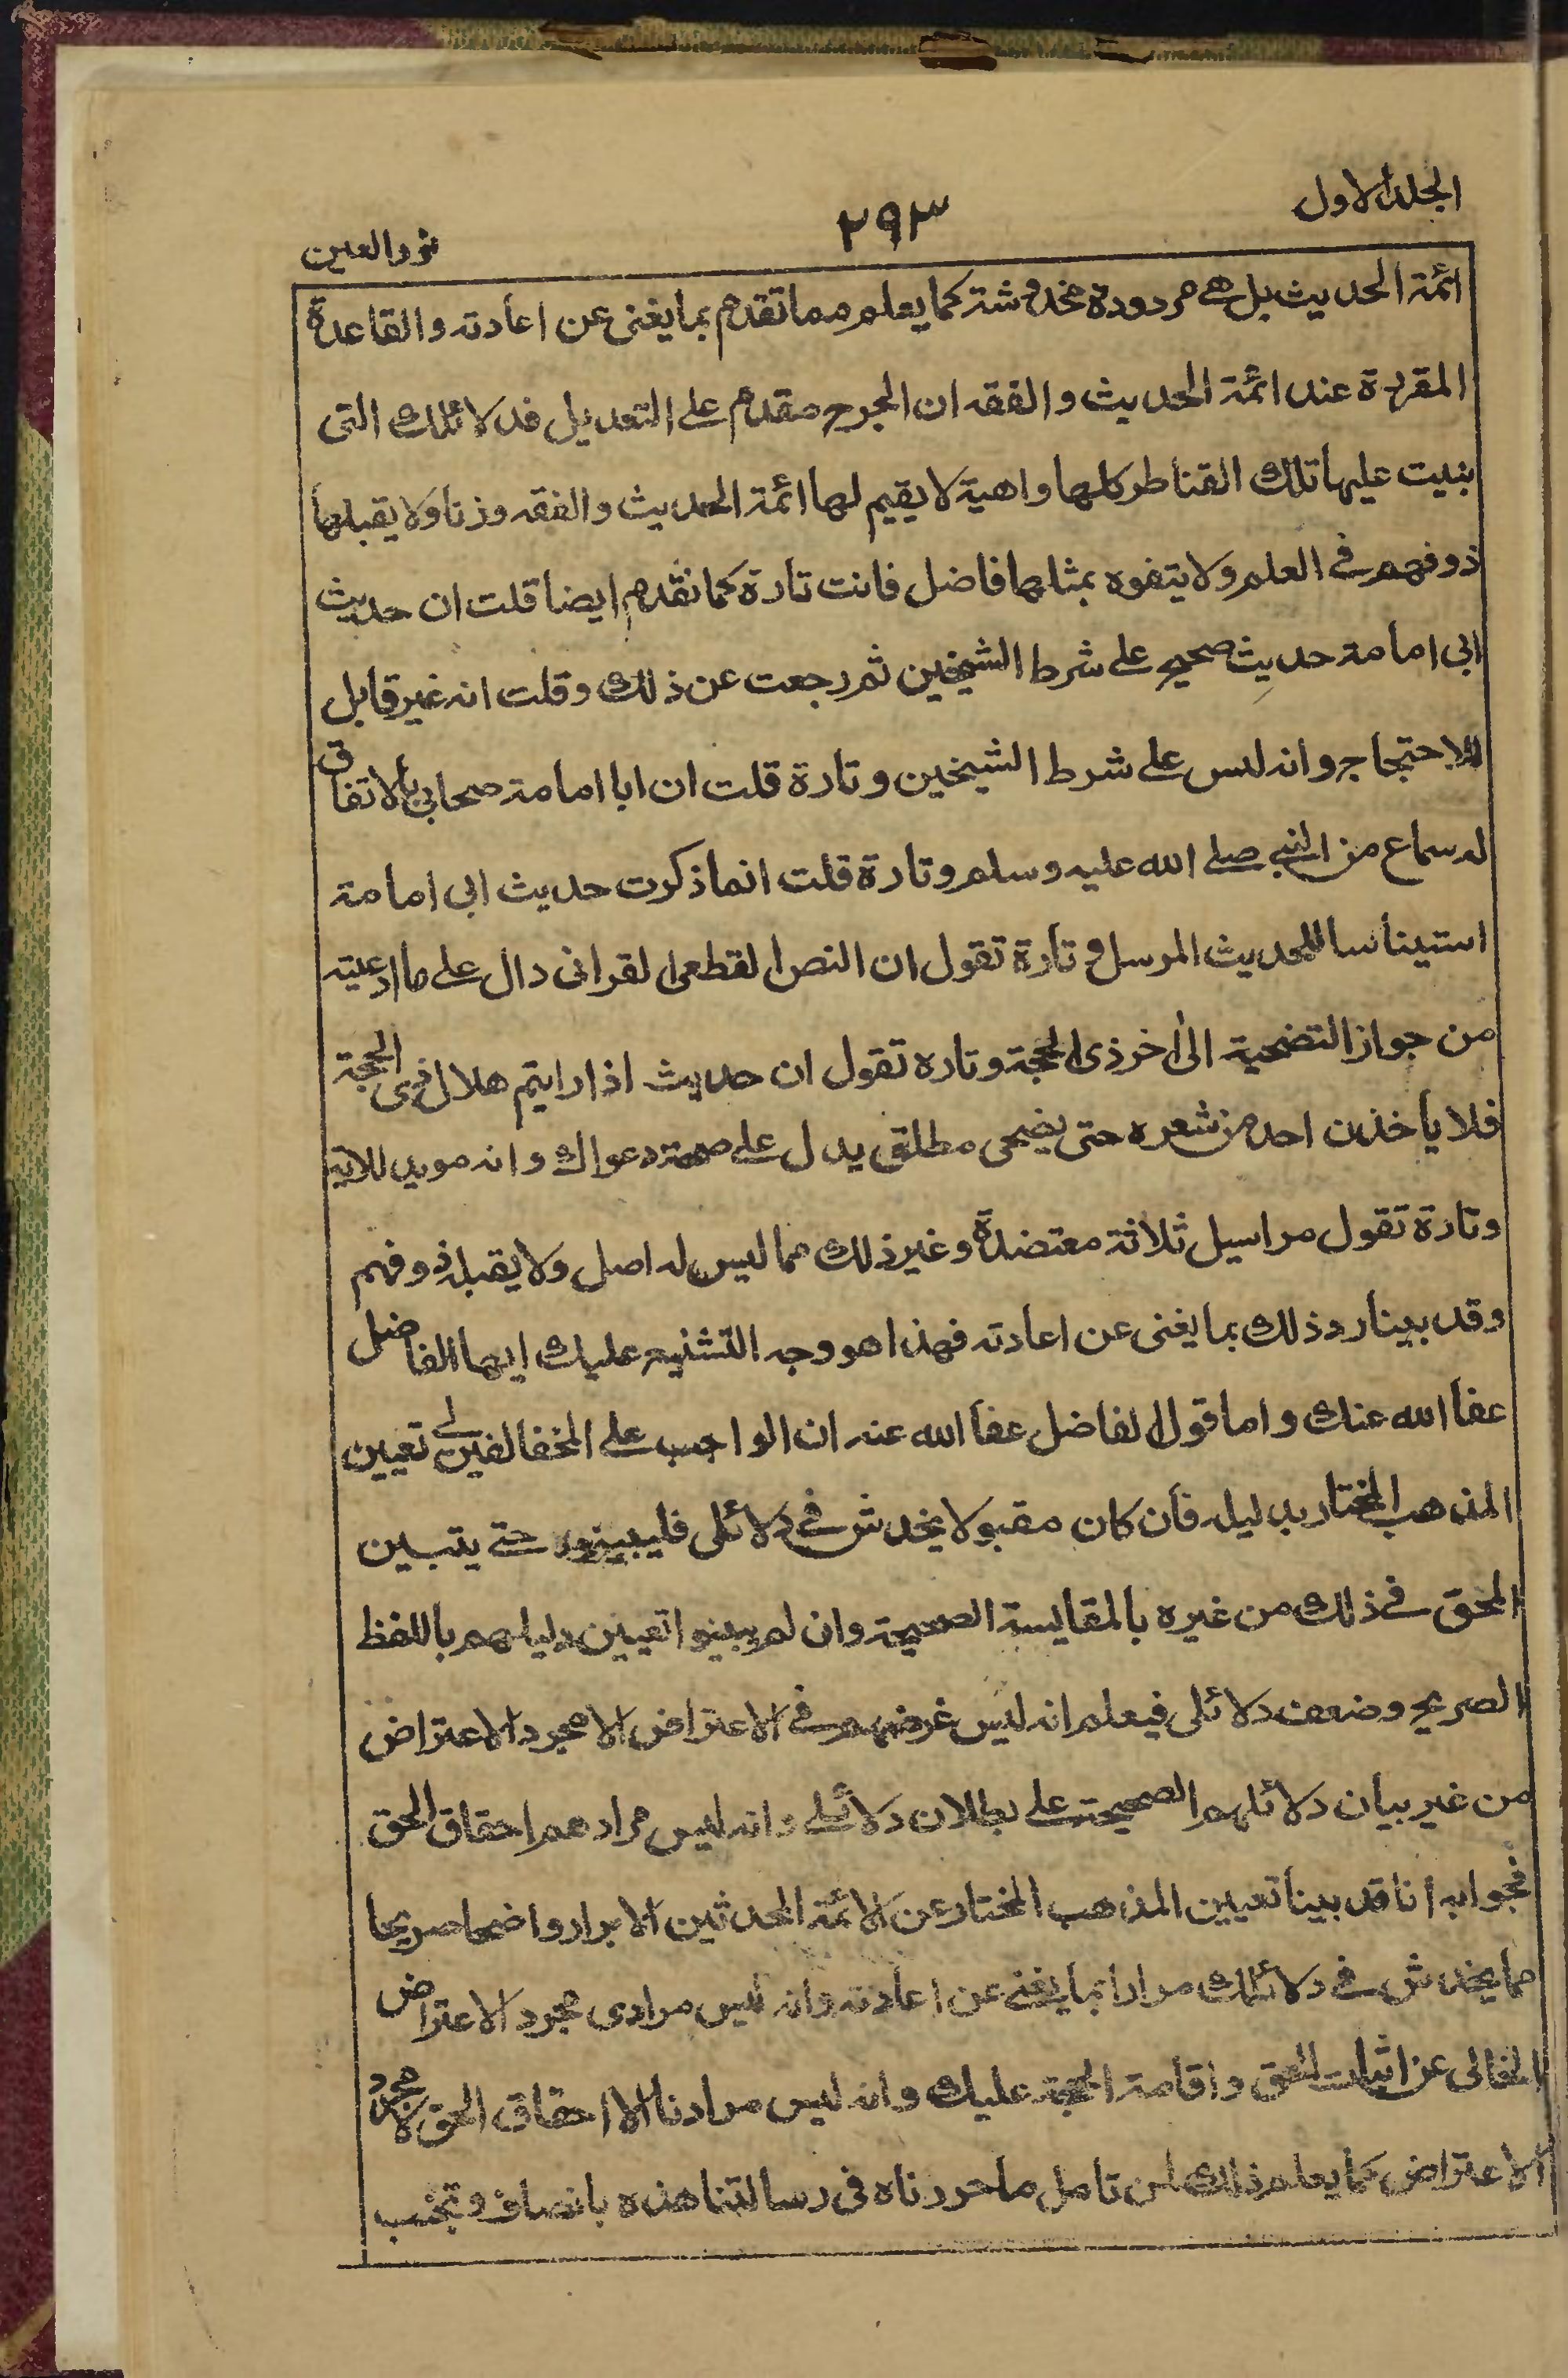 الجلد الاول
٢٩٣
نور العين
ائمة الحديث بل هے مردودة مخدوشة كما يعلم مما تقدم بما يغنى عن اعادته والقاعدة
المقررة عند ائمة الحديث والفقه ان الجرح مقدم على التعديل فدلائلك التى
بنيت عليها تلك القناطر كلها واهية لا يقيم لها ائمة الحديث والفقه وزنا ولا يقبلها
ذو فهم فى العلم ولا يتفوه بمثلها فاضل فانت تارة كما تقدم ايضا قلت ان حديث
ابى امامة حديث صحيح على شرط الشيخين ثم رجعت عن ذلك وقلت انه غير قابل
للاحتجاج وانه ليس على شرط الشيخين وتارة قلت ان ابا امامة صحابى بالاتفاق
له سماع من النبى صلے الله عليه وسلم وتارة قلت انما ذكرت حديث ابى امامة
استيناسا للحديث المرسل و تارة تقول ان النص القطعى القرانى دال على ما ادعيته
من جواز التضحية الى اخر ذى الحجة وتاره تقول ان حديث اذا رايتم هلال ذى الحجة
فلا ياخذن احد من شعره حتى يضحى مطلق يدل على صحة دعواك وانه مويد للاية
وتارة تقول مراسيل ثلاثة معتضدة وغير ذلك مما ليس له اصل ولا يقبله ذو فهم
وقد بينا رد ذلك بما يغنى عن اعادته فهذا هو وجه التشنيع عليك ايها الفاضل
عفا الله عنك واما قول الفاضل عفا الله عنه ان الواجب على المخالفين لے تعيين
المذهب المختار بدليله فان كان مقبولا يخدش فى دلائلى فليبينوه حتے يتبين
المحق فے ذلك من غيره بالمقايسة الصحيحة وان لم يبينوا تعيين دليلهم باللفظ
الصريح وضعف دلائلى فيعلم انه ليس غرضهم فى الاعتراض الا مجرد الاعتراض
من غير بيان دلائلهم الصحيحة على بطلان دلائلے وانه ليس مرادهم احقاق الحق
فجوابه انا قد بينا تعيين المذهب المختار عن الائمة المحدثين الابرار واضحا صريحا
مما يخدش فے دلائلك مرارا بما يغنے عن اعادته وانه ليس مرادى مجرد الاعتراض
الخالى عن اثبات الحق واقامة الحجة عليك وانه ليس مرادنا الا احقاق الحق لا مجرد
الاعتراض كما يعلم ذلك لمن تامل ما حررناه فى رسالتنا هذه بانصاف وتجنب